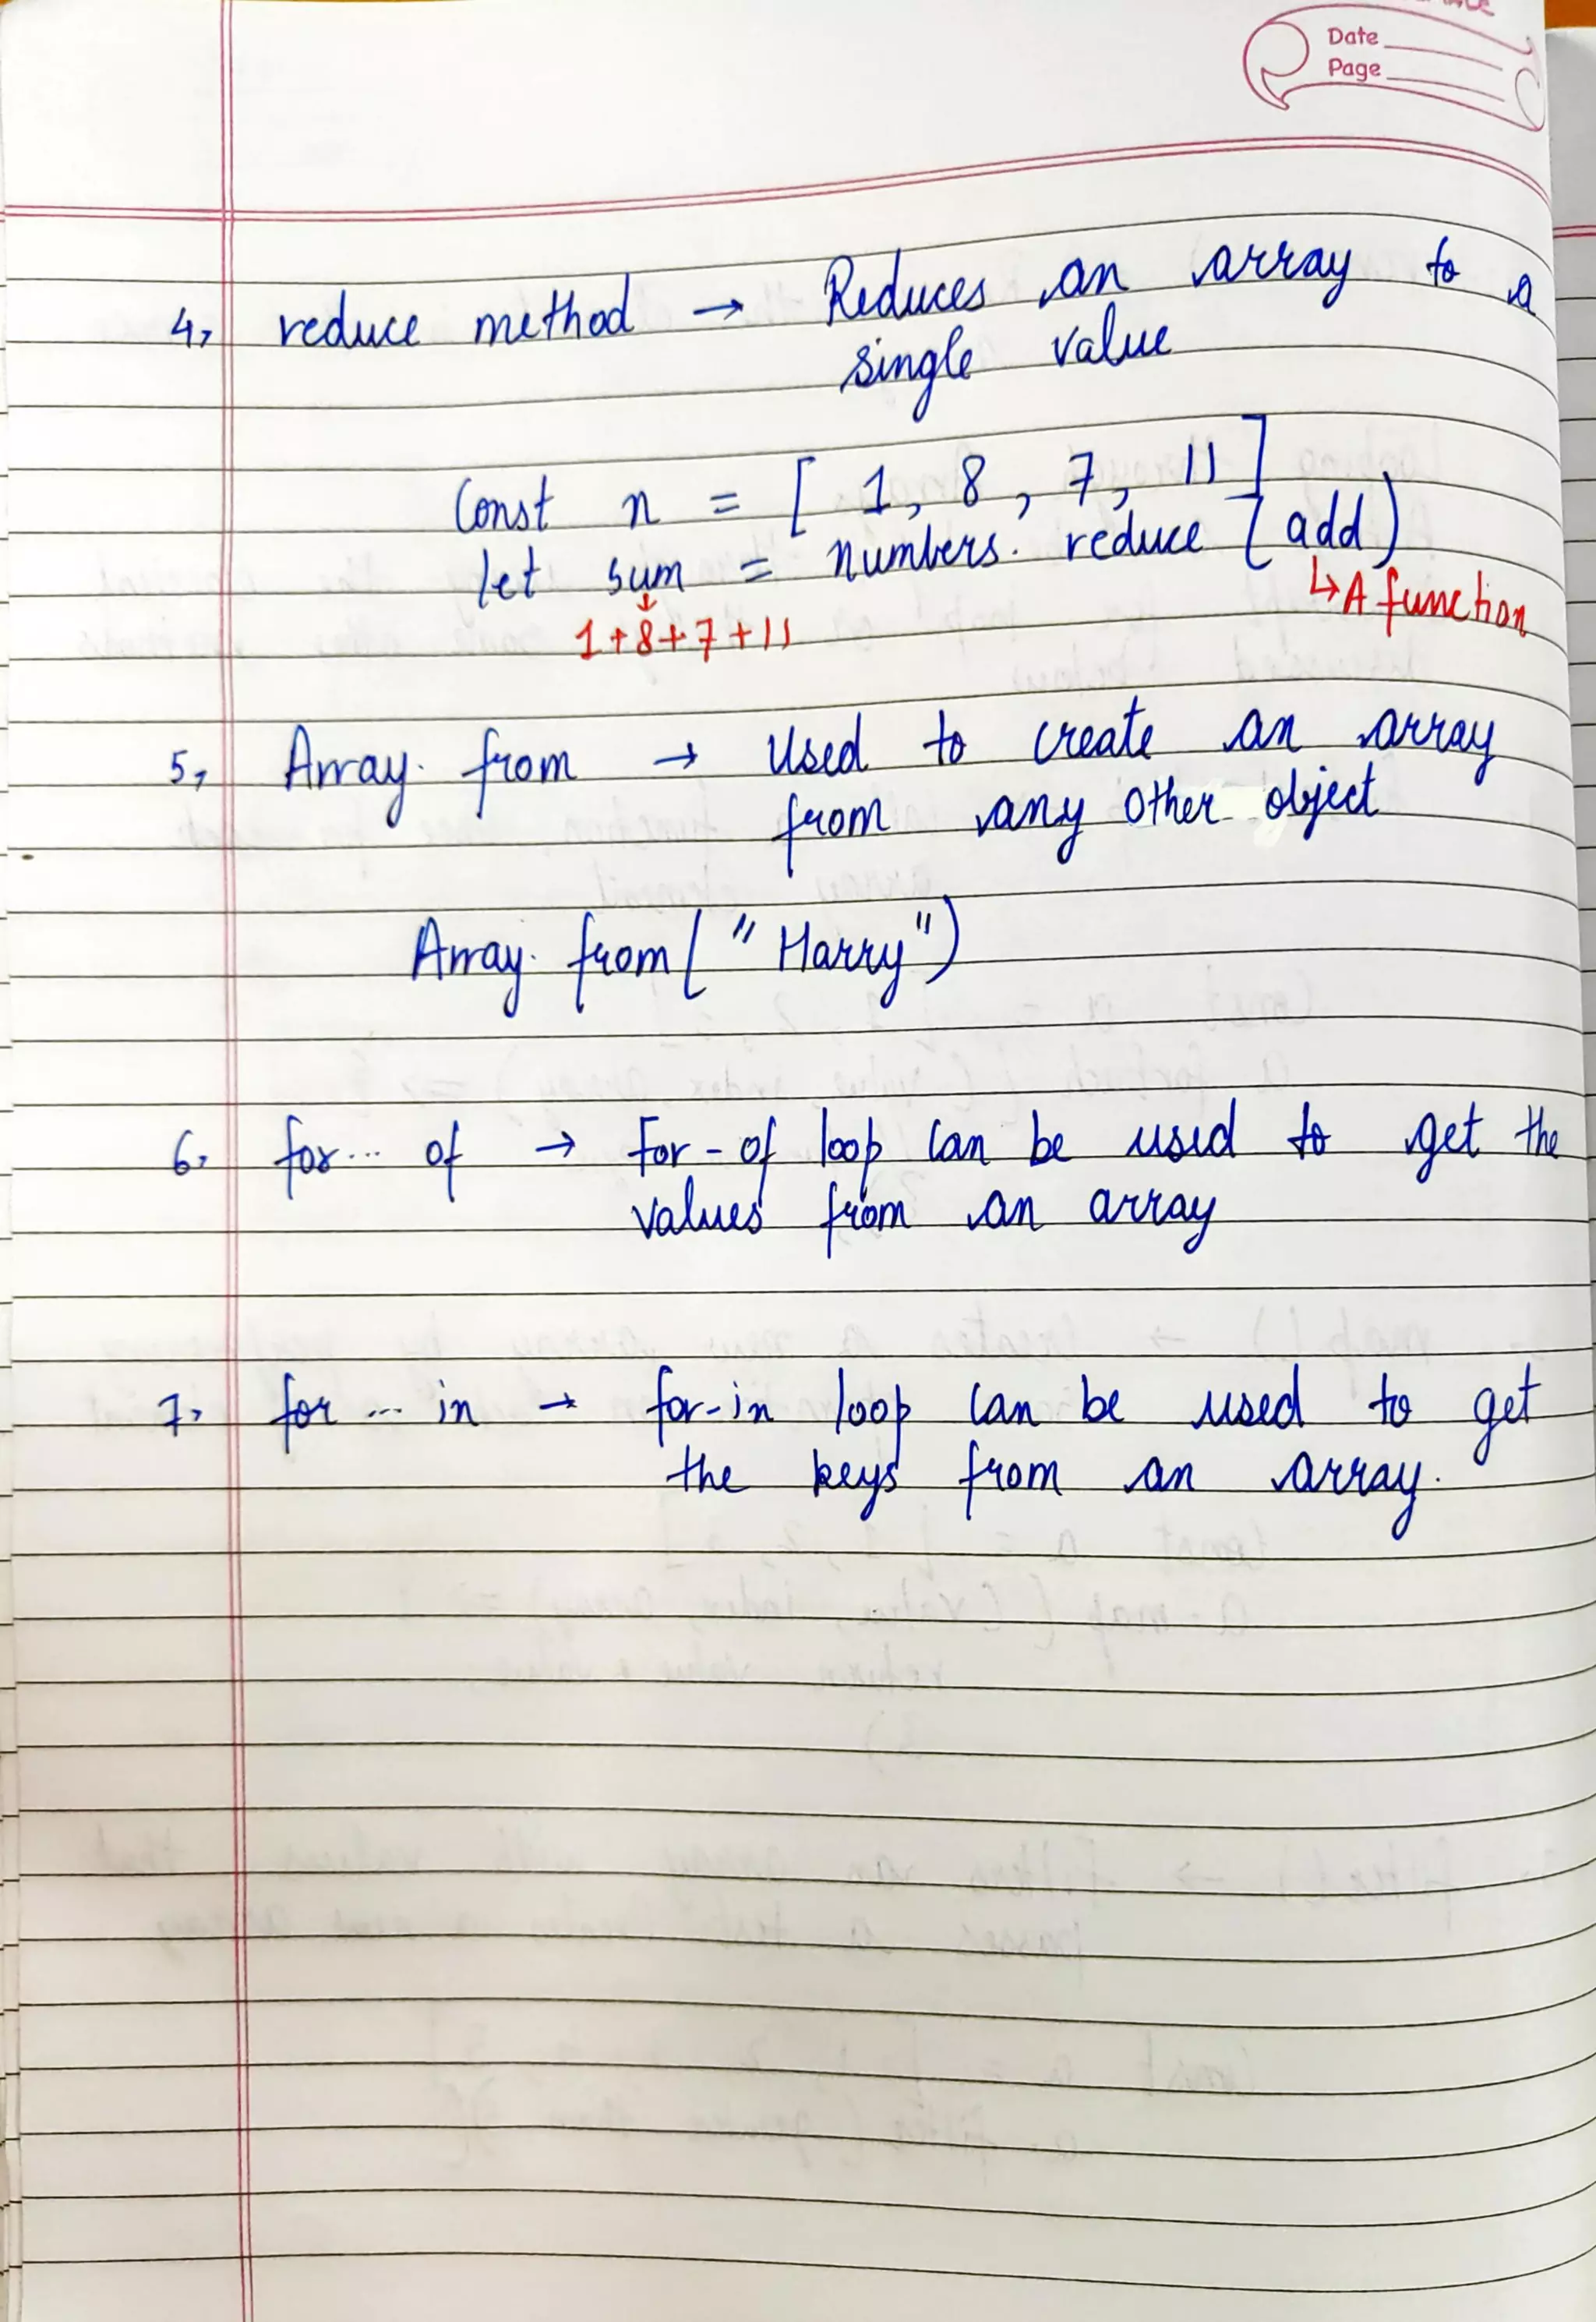 Date
Page
4, reduce method → Reduces an array to a
single value
Const n = [ 1, 8, 7, 11 ]
let sum = numbers. reduce (add)
↳ A function
↓
1+8+7+11
5, Array. from → Used to create an array
from any other object
Array. from ("Harry")
6, for... of → For-of loop can be used to get the
values from an array
7, for ... in → for-in loop can be used to get
the keys from an array.